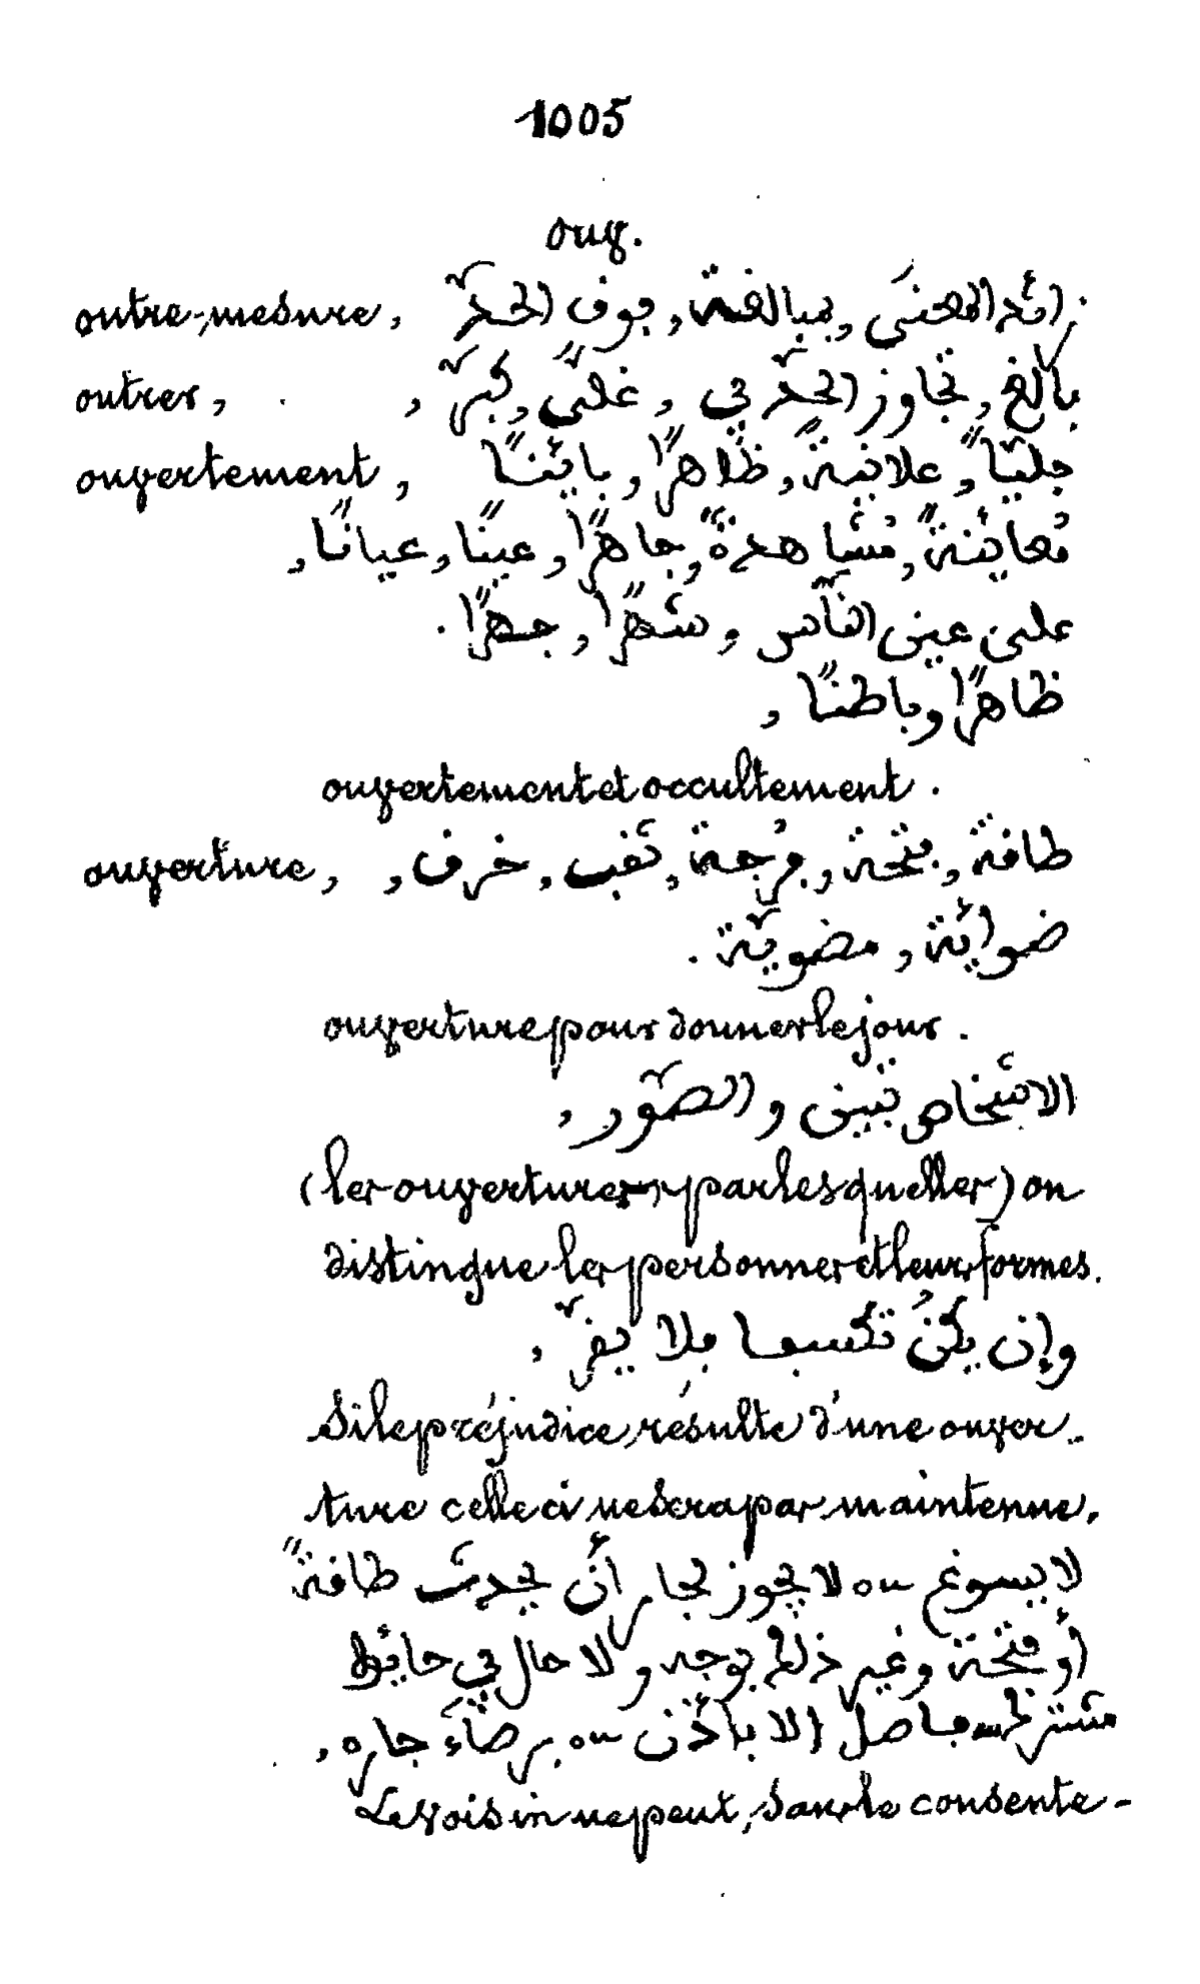 1005
ouv.
outre-mesure, زائد المعنى, بمبالغة, فوق الحدّ
outrer, بالغ, تجاوز الحدّ في, غلّى, كبّر,
ouvertement, جليّاً, علانيةً, ظاهراً, بائناً
مُعاينةً, مُشاهدةً, جاهراً, عيناً, عياناً,
على عين النّاس, شهراً, جهراً.
ظاهراً وباطناً,
ouvertement et occultement.
ouverture, طاقة, فتحة, فُرجة, ثقب, خرق,
ضوائة, مضويّة.
ouverture pour donner le jour.
الاشخاص تبين والصّور,
(les ouvertures par lesquelles) on
distingue les personnes et leurs formes.
وإن يكنْ تكسبها فلا يقرّ,
Si le préjudice résulte d'une ouver-
ture celle ci ne sera pas maintenue.
لا يسوغ ou لا يجوز لجار أن يحدث طاقةً
أو فتحة وغير ذلك بوجه ولا حال في حائط
مشترك فاصل إلا بإذن ou برضاء جاره,
Le voisin ne peut, sans le consente-